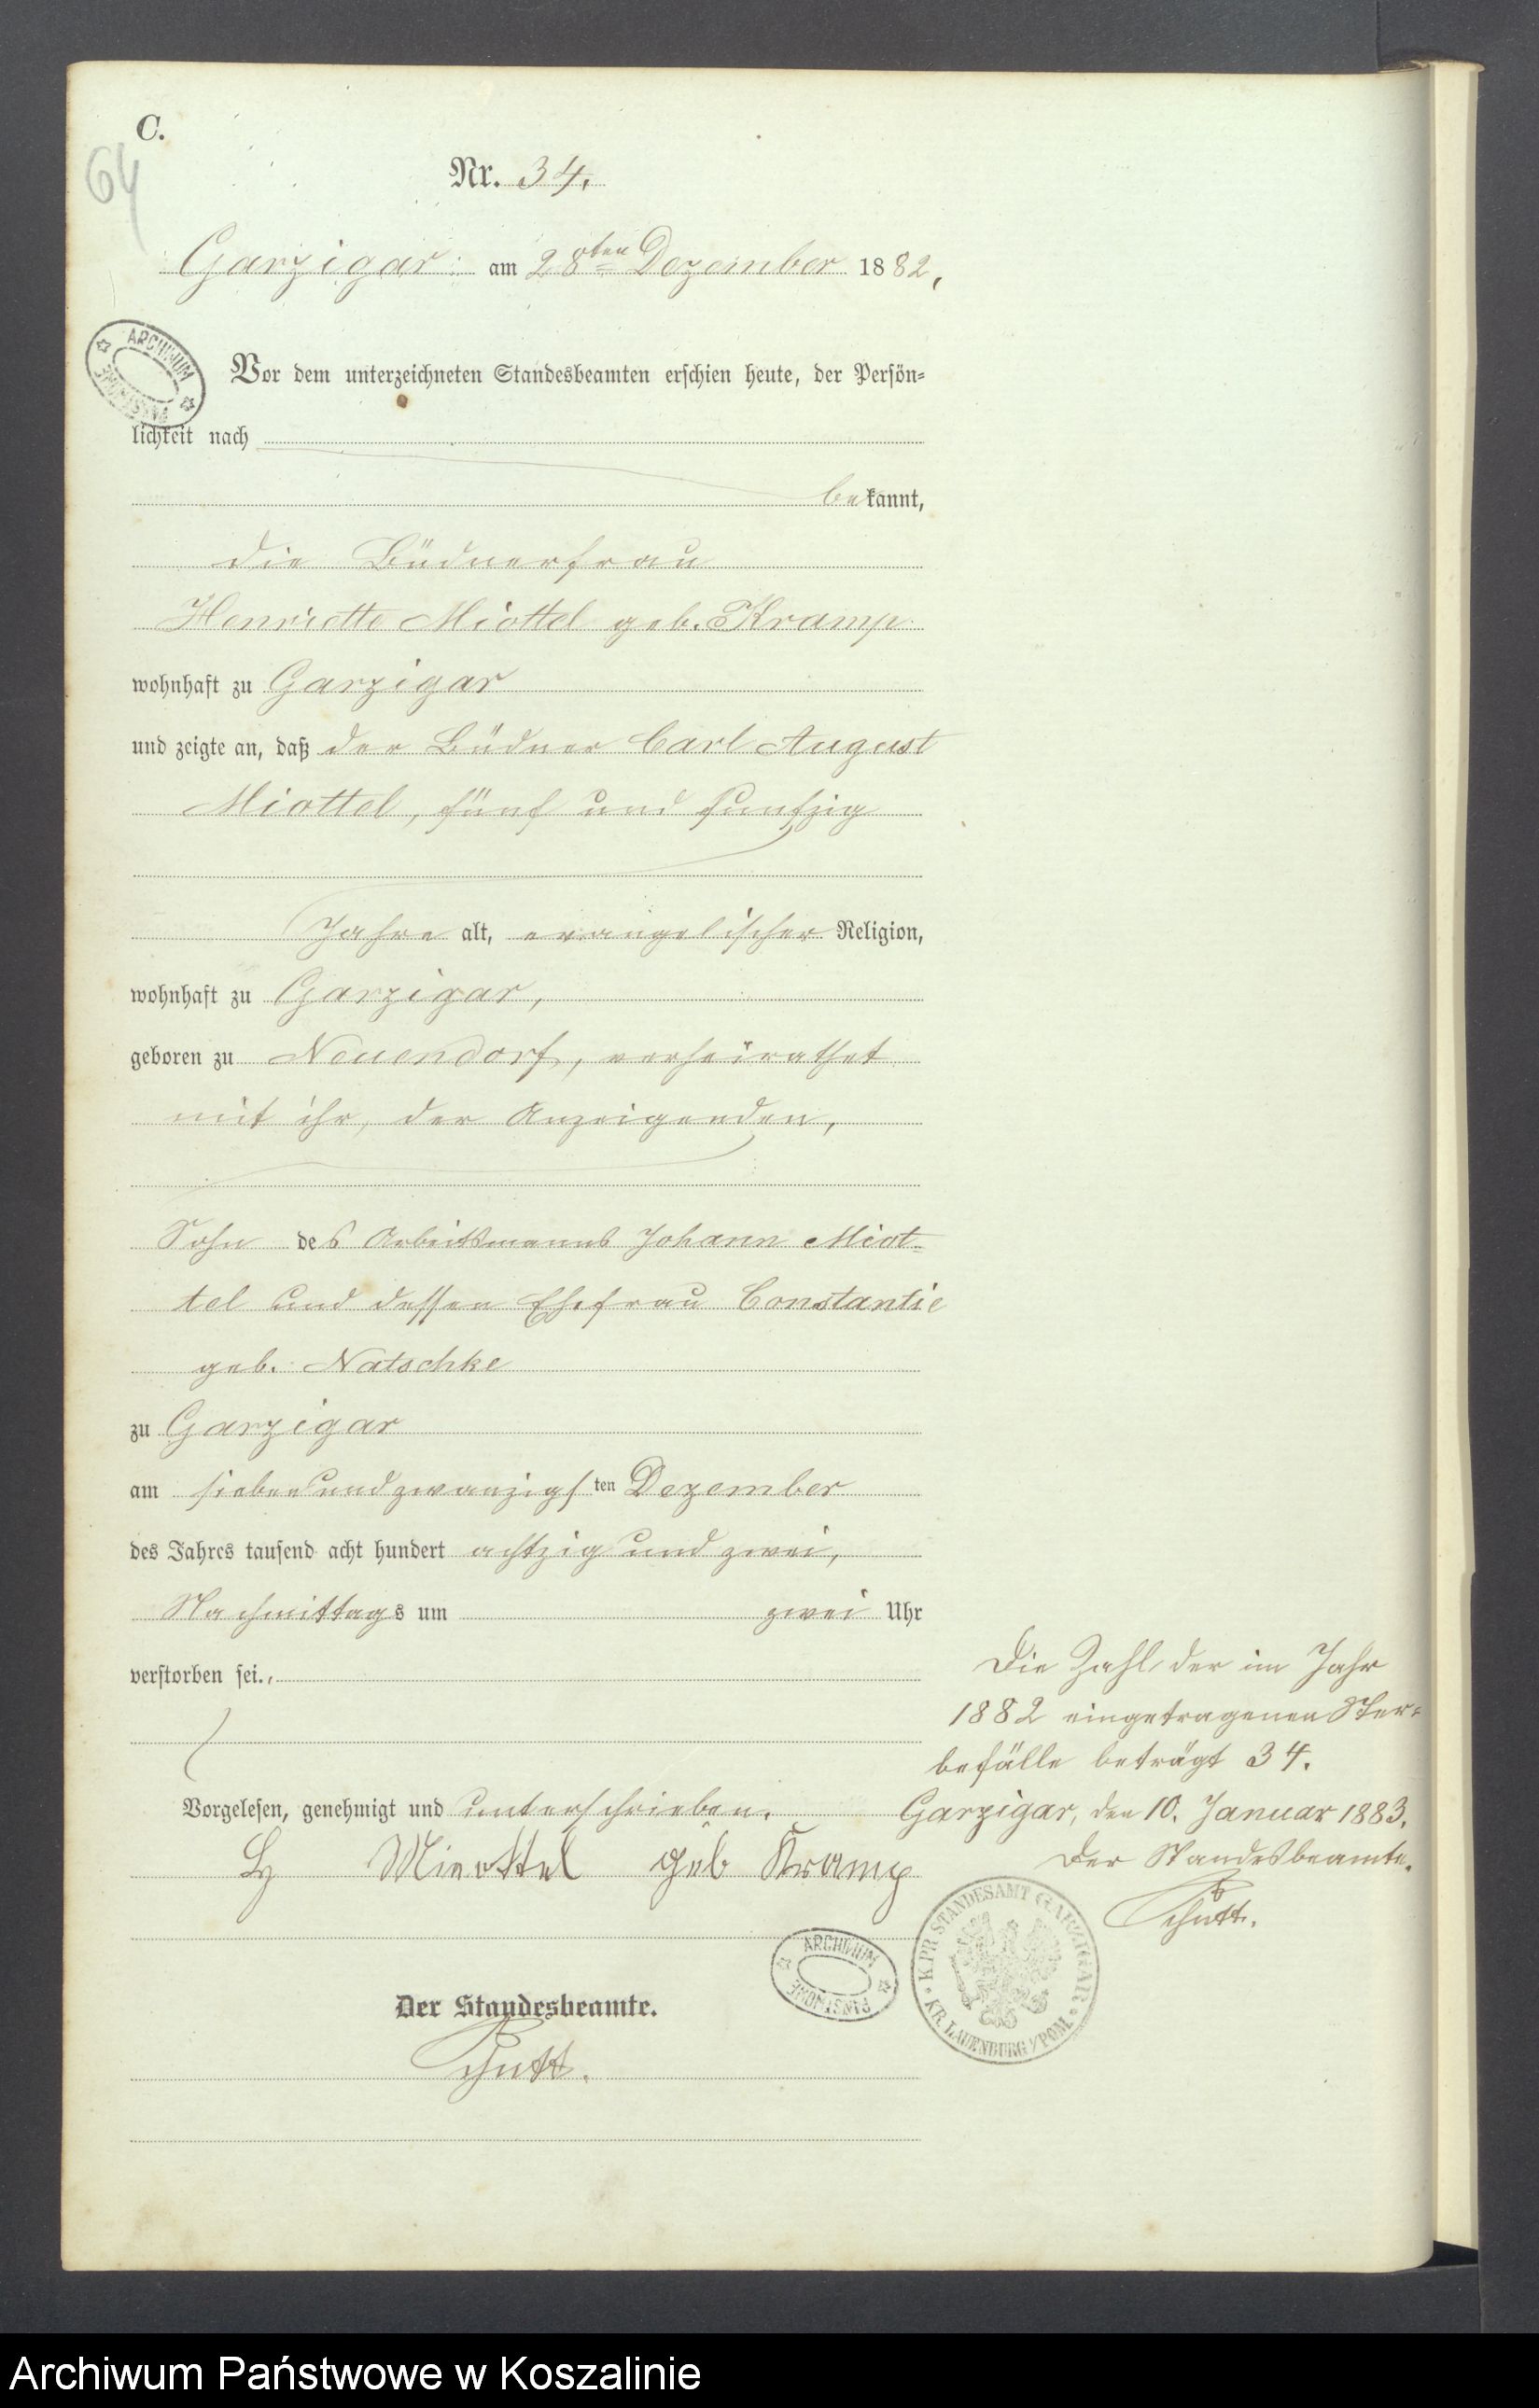 C.
64
Nr. 34.
Garzigar am 28ten Dezember 1882,
ARCHIWUM PAŃSTWOWE
Vor dem unterzeichneten Standesbeamten erschien heute, der Persön-
lichkeit nach
bekannt,
die Büdnerfrau
Henriette Miottel geb. Kramp
wohnhaft zu Garzigar
und zeigte an, daß der Büdner Carl August
Miottel, fünf und funfzig
Jahre alt, evangelischer Religion,
wohnhaft zu Garzigar,
geboren zu Neuendorf, verheirathet
mit ihr, der Anzeigenden,
Sohn des Arbeitsmanns Johann Miot-
tel und dessen Ehefrau Constantie
geb. Natschke
zu Garzigar
am sieben und zwanzigsten Dezember
des Jahres tausend acht hundert achtzig und zwei,
Nachmittags um zwei Uhr
verstorben sei.
Vorgelesen, genehmigt und unterschrieben.
H Miottel geb Kramp
Der Standesbeamte.
Schutt.
Die Zahl der im Jahr
1882 eingetragenen Ster-
befälle beträgt 34.
Garzigar, den 10. Januar 1883.
Der Standesbeamte.
Schutt.
K. PR. STANDESAMT GARZIGAR
KR. LAUENBURG i/POM.
ARCHIWUM PAŃSTWOWE
Archiwum Państwowe w Koszalinie